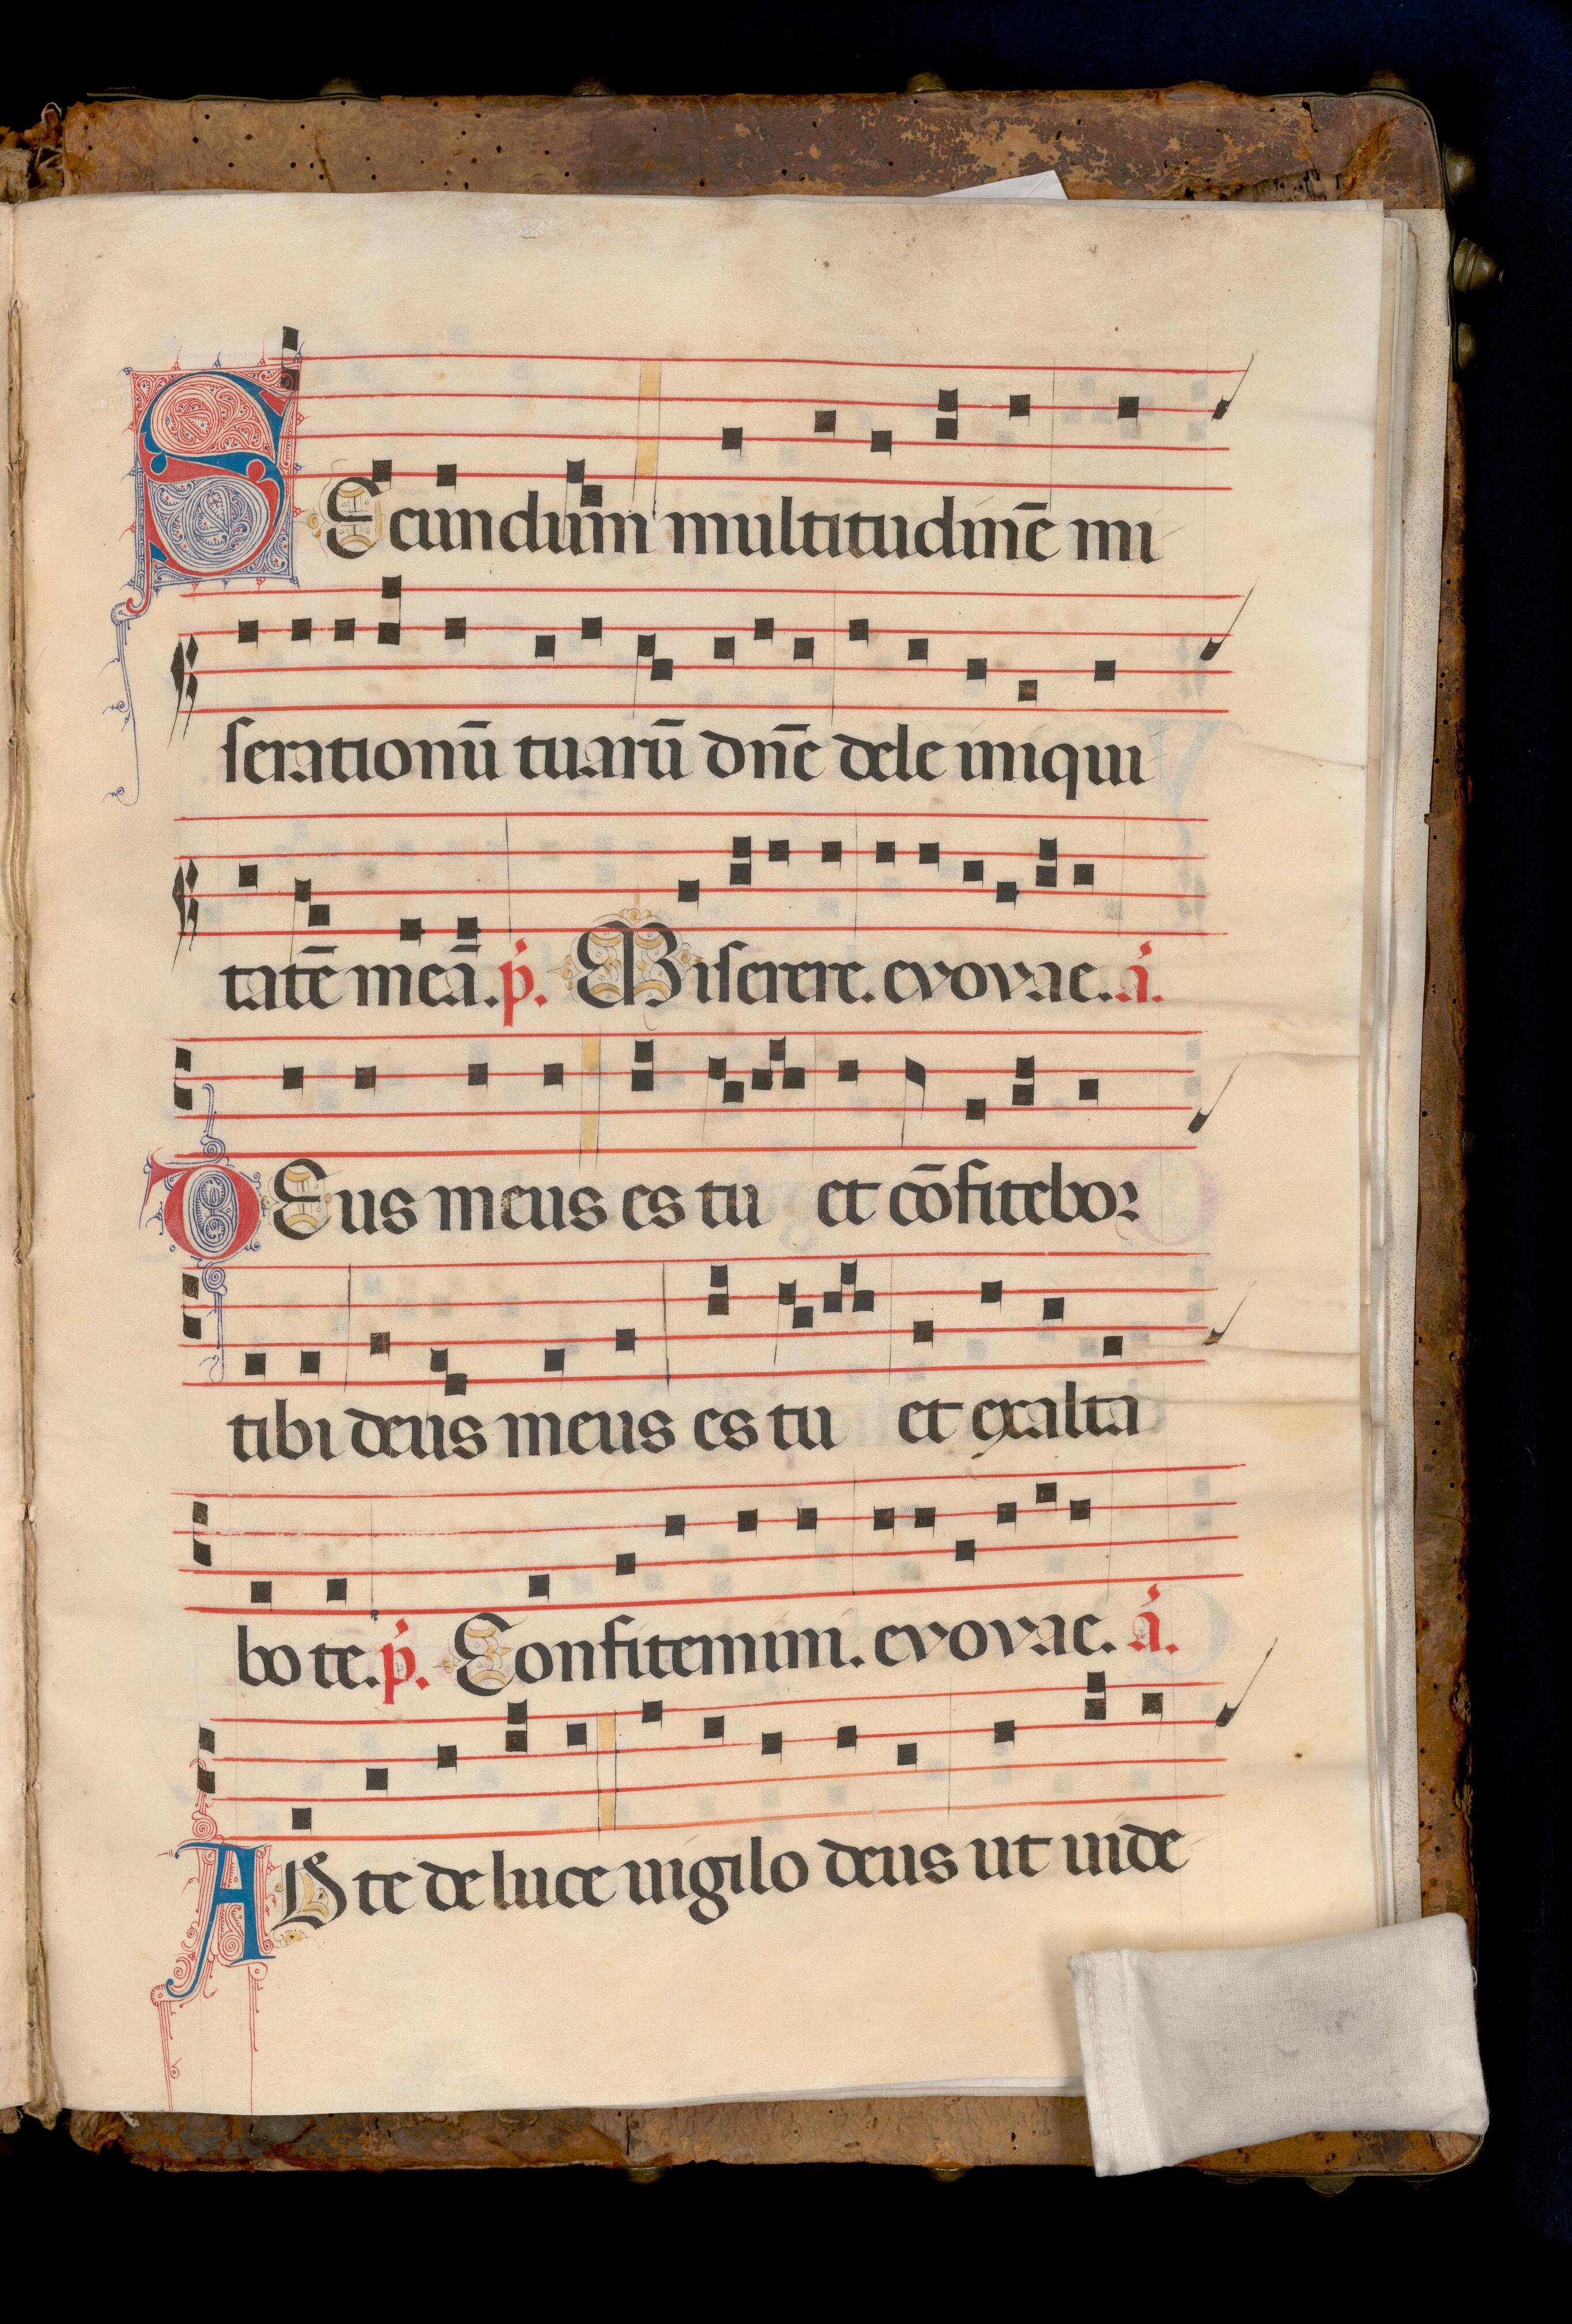 SEcundum multitudinē mi
serationū tuarū dn̄e dele iniqui
tatē meā. p̍. Miserere. evovae. a̍.
DEus meus es tu et cōfitebor
tibi deus meus es tu et exalta
bo te. p̍. Confitemini. evovae. a̍.
AD te de luce uigilo deus ut uide